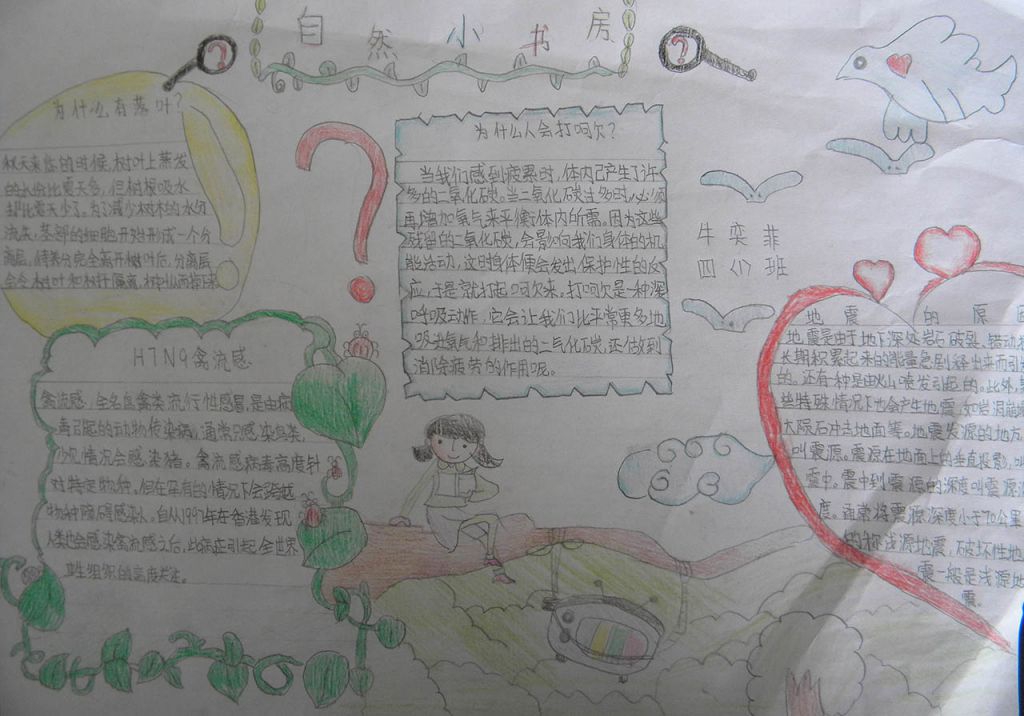 自然小书房
为什么有落叶?
秋天来临的时候,树叶上蒸发
的水份比夏天多,但树根吸水
却比夏天少了。为了减少树木的水份
流失,茎部的细胞开始形成一个分
离层,待养分完全离开树叶后,分离层
会令树叶和树干隔离,树叶从而掉下来
为什么人会打呵欠?
当我们感到疲累时,体内已产生了许
多的二氧化碳。当二氧化碳过多时,必须
再增加氧气来平衡体内所需。因为这些
残留的二氧化碳,会影响我们身体的机
能活动,这时身体便会发出保护性的反
应,于是就打起呵欠来。打呵欠是一种深
呼吸动作,它会让我们比平常更多地
吸进氧气和排出的二氧化碳,还做到
消除疲劳的作用呢。
牛奕菲
四(1)班
H7N9禽流感
禽流感,全名鸟禽类流行性感冒,是由病
毒引起的动物传染病,通常只感染鸟类,
少见情况会感染猪。禽流感病毒高度针
对特定物种,但在罕有的情况下会跨越
物种障碍感染人。自从1997年在香港发现
人类也会感染禽流感之后,此病症引起全世界
卫生组织的高度关注。
地震的原因
地震是由于地下深处岩石破裂、错动
长期积累起来的能量急剧释出来而引
的。还有一种是由火山喷发引起的。此外,
些特殊情况下也会产生地震,如岩洞崩
大陨石冲击地面等。地震发源的地方
叫震源。震源在地面上的垂直投影,叫
震中。震中到震源的深度叫震源深
度。通常将震源深度小于70公里
的称浅源地震,破坏性地
震一般是浅源地
震。